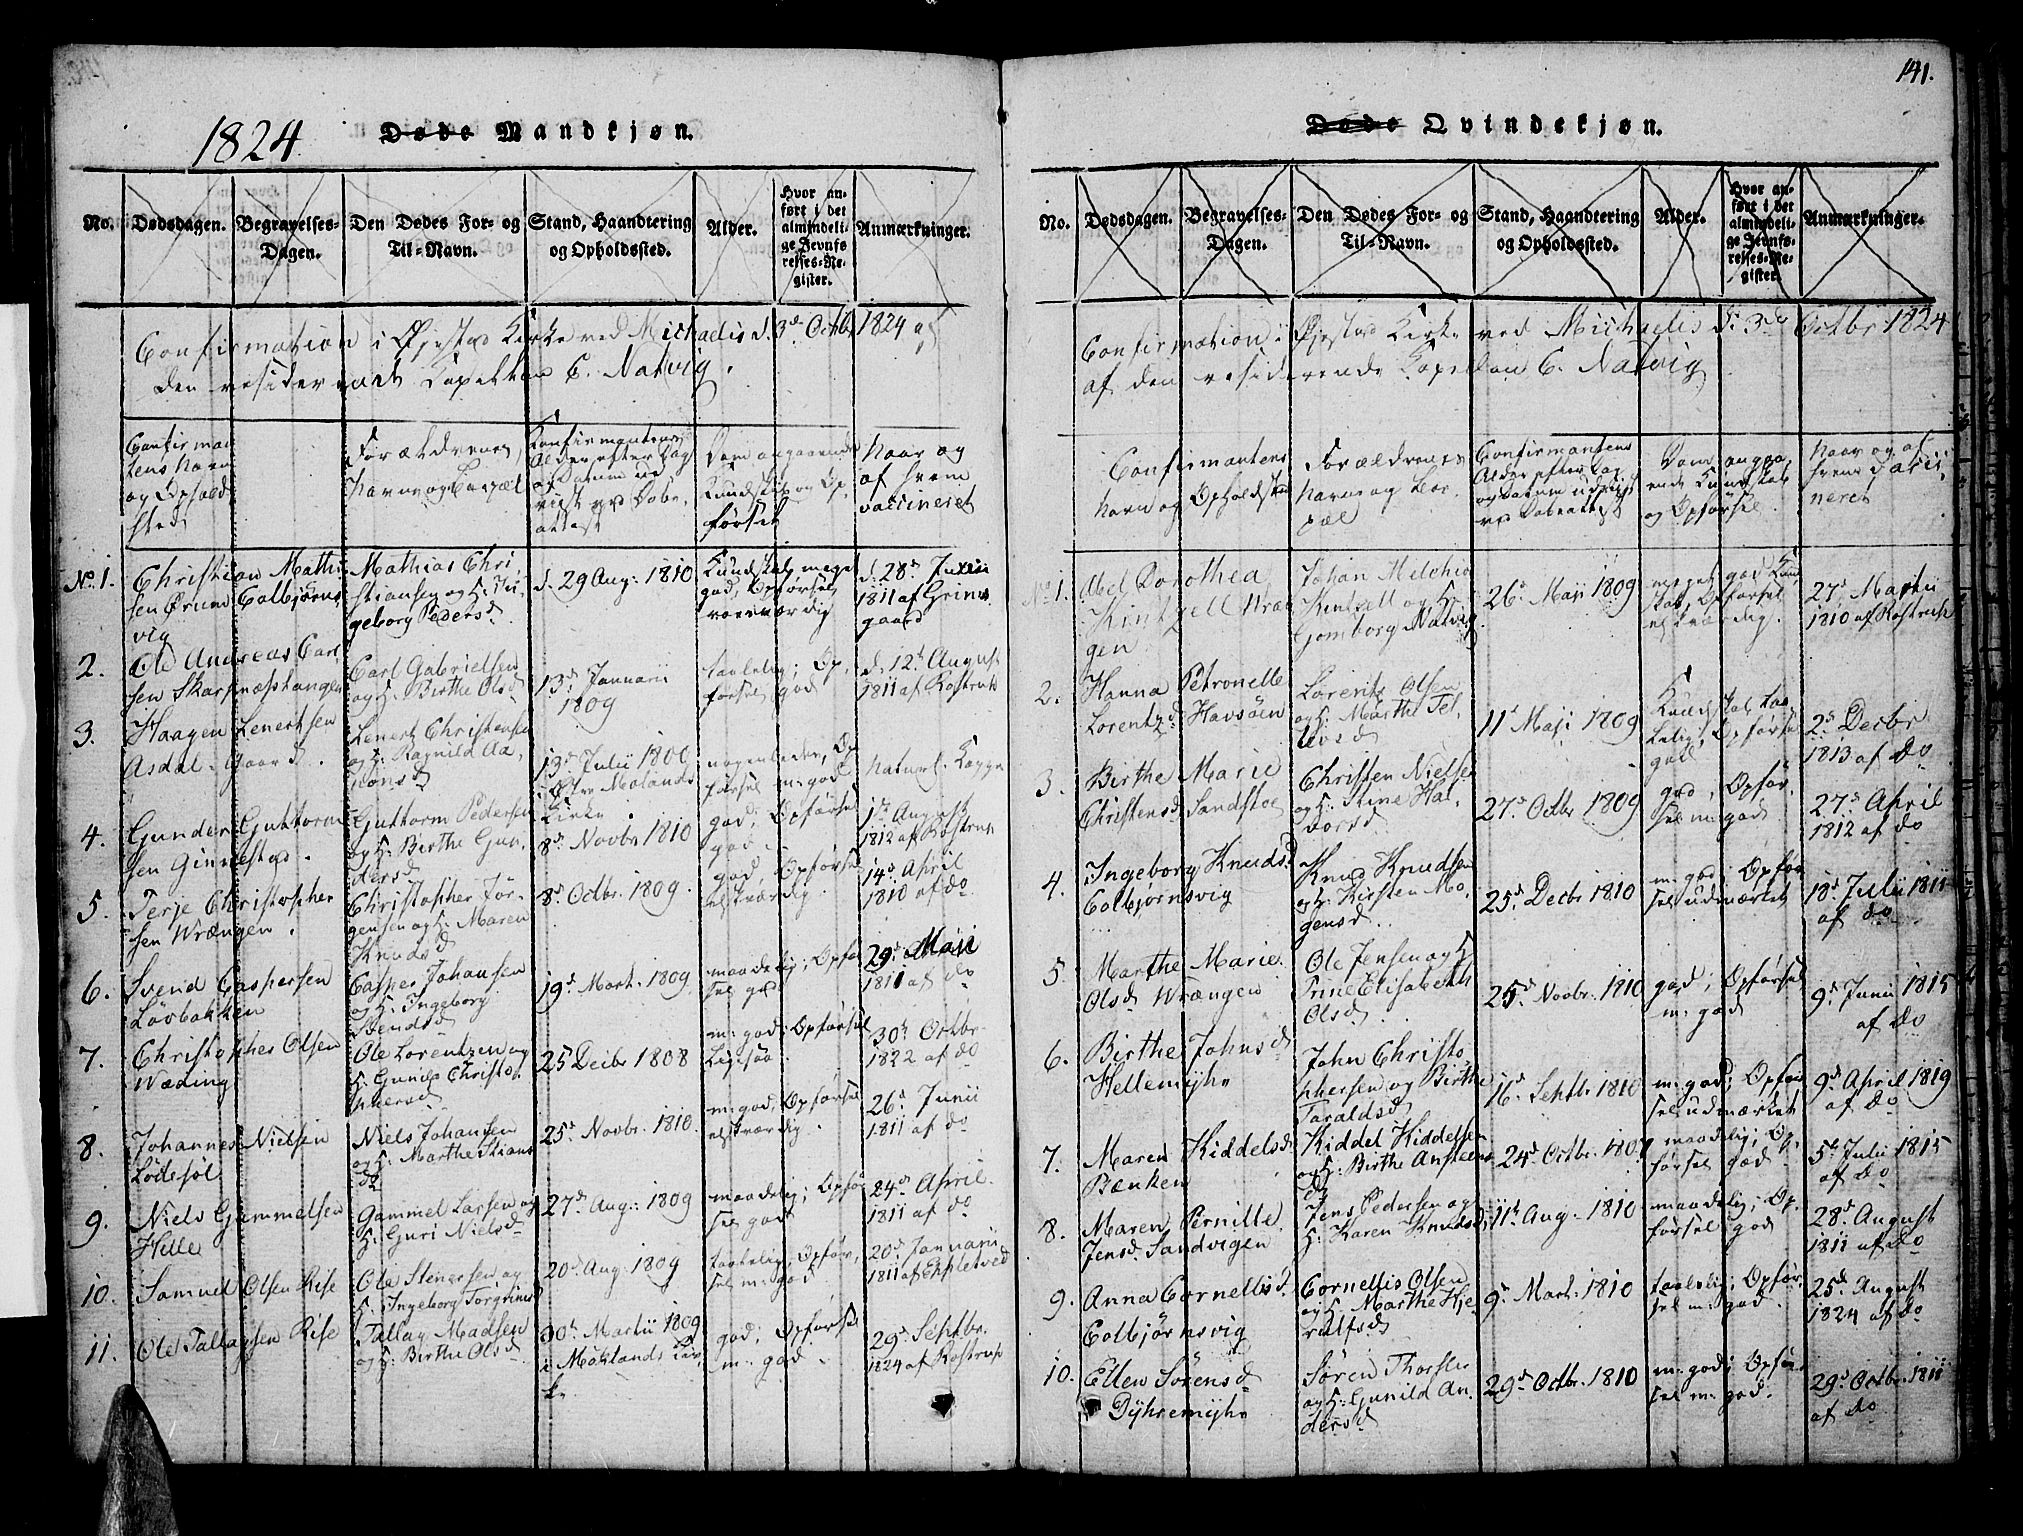 1824 Døde Mandkjøn.
No. Dødsdagen. Begravelses-Dagen. Den Dødes For- og Til-Navn. Stand, Haandtering og Opholdssted. Alder. Hvor anført i det almindelige Jevnførelses-Register. Anmærkninger.
Confirmation i Øjestad Kirke ved Michaelis d. 3d Octbr 1824 af
den residerende Capellan C. Natvig.
Confirmantens Navn og Opholdsted
Forældrenes Navne og Carxel
Confirmantens Alder efter Dag og Datum udvist ved Dobeattest
Dom angaaende Kundskab og Opførsel
Naar og af hvem vaccineret
No 1. Christian Mathisen Ørum Colbjørnsvig
Mathias Christiansen og H: Ingeborg Pedersd
d. 29 Aug: 1810
Kundskab meget god, Opførsel roesværdig
d: 28d Junii 1811 af Grimsgaard
2. Ole Andreas Carlsen Skarpnæstangen
Carl Gabrielsen og H: Birthe Olsd
13d Januarii 1809
taalelig; Opførsel god
d. 12t August 1811 af Rostrup
3. Haagen Lenertsen Asdal-Gaard.
Lenert Christensen og H: Ragnild Aa
13d Julii 1800 i Østre Molands Kirke
nogenledes, Opførsel m: god
Naturl. Kopper
4. Gunder Guttormsen Ginnestad.
Guttorm Pedersen og H: Birthe Gundersd
8d Novbr 1810
god; Opførsel god
1t August 1812 af Rostrup
5. Terje Christophersen Wrængen.
Christopher Jörgensen og H: Maren Knudsd
8d Octbr. 1809.
god, Opførsel elskværdig
14d April 1810 af do
6. Svend Caspersen Løvbakken
Casper Johansen og H: Ingeborg Svendsd
19d Mart. 1809
maadelig; Opførsel god
29d Maji 1811 af do
7. Christopher Olsen Wæding
Ole Lorentzen og H: Gunild Christophersd
25 Decbr 1808
m: god: Opførsel ligesaa
30t Octbr 1822 af do
8. Johannes Nielsen Lødesøl
Niels Johansen og H: Marthe Stiansd
25d Novbr. 1810.
m: god, Opførsel elskværdig
26d Junii 1811 af do
9. Niels Gammelsen Helle
Gammel Larsen og H: Guri Nielsd
27d Aug: 1809
maadelig; Opførsel god
24d April 1811 af do
10. Samuel Olsen Rise
Ole Stenersen og H: Ingeborg Torgrimsd
20d Aug: 1809
taalelig, Opførsel m: god
20d Januarii 1811 af Eppletved
11. Ole Tallagsen Rise
Tallag Madsen og H: Birthe Olsd
30t Martii 1809 i Moklands Kirke
god; Opførsel m: god
29d Septbr. 1824 af Rostrup
141.
Døde Qvindekjøn.
No. Dødsdagen. Begravelses-Dagen. Den Dødes For- og Til-Navn. Stand, Haandtering og Opholdssted. Alder. Hvor anført i det almindelige Jevnførelses-Register. Anmærkninger.
Confirmation i Øjestad Kirke ved Michaelis d: 3d Octbr 1824
af den residerende Capellan C. Natvig
Confirmantens Navn og Opholdsted
Forældrenes Navne og
Confirmantens Alder efter Dag og Datum udvist ved Dobeattest
Dom angaaende Kundskab og Opførsel
Naar og af hvem vaccineret
No 1. Abel Dorothea Kintzell Wrængen
Johan Melchior Kentzell og H: Gjomborg Natvig
26d Maji 1809
meget god Kundskab, Opførsel elskværdig.
27d Martii 1810 af Rostrup
2. Hanna Petronelle Lorentzd Havsöen
Lorentz Olsen og H: Marthe Tellevsd
11t Maji 1809
Kundskab taalelig, Opførsel god
2d Decbr 1813 af do
3. Birthe Marie Christensd Sandstoe
Christen Nielsen og H: Stine Halvorsd
27d Octbr 1809
god, Opførsel m: god
27d April 1812 af do
4. Ingeborg Knudsd Colbjørnsvig
Knud Knudsen og H: Kirsten Mogensd
25d Decbr 1810
m: god; Opførsel udmærket
18d Julii 1811 af do
5. Marthe Marie Olsd Wrængen
Ole Jensen og H: Trine Elisabeth Olsd
25d Novbr. 1810
god; Opførsel m: god
9d Junii 1815 af do
6. Birthe Johnsd Hellemyhr
John Christophersen og Birthe Taraldsd
16d Septbr 1810
m: god; Opførsel udmærket
9d April 1819 af do
7. Maren Kiddelsd Bænken
Kiddel Kiddelsen og H: Birthe Anstensd
24d Octbr. 1807
maadelig; Opførsel god
5t Julii 1815 af do
8. Maren Pernille Jensd. Sandvigen
Jens Pedersen og H: Karen Knudsd
11t Aug. 1810
maadelig; Opførsel god
28d August 1811 af do
9. Anna Cornelisd. Colbjørnsvig
Cornellis Olsen og H: Marthe Hjerulfsd
9d Mart: 1810
taalelig; Opførsel m: god.
25d August 1824 af do
10. Ellen Sörensd Dyhremyhr
Søren Thors og H: Gunild Andersd
29d Octbr. 1810
m: god; Opførsel m: god.
29d Octbr. 1811 af do